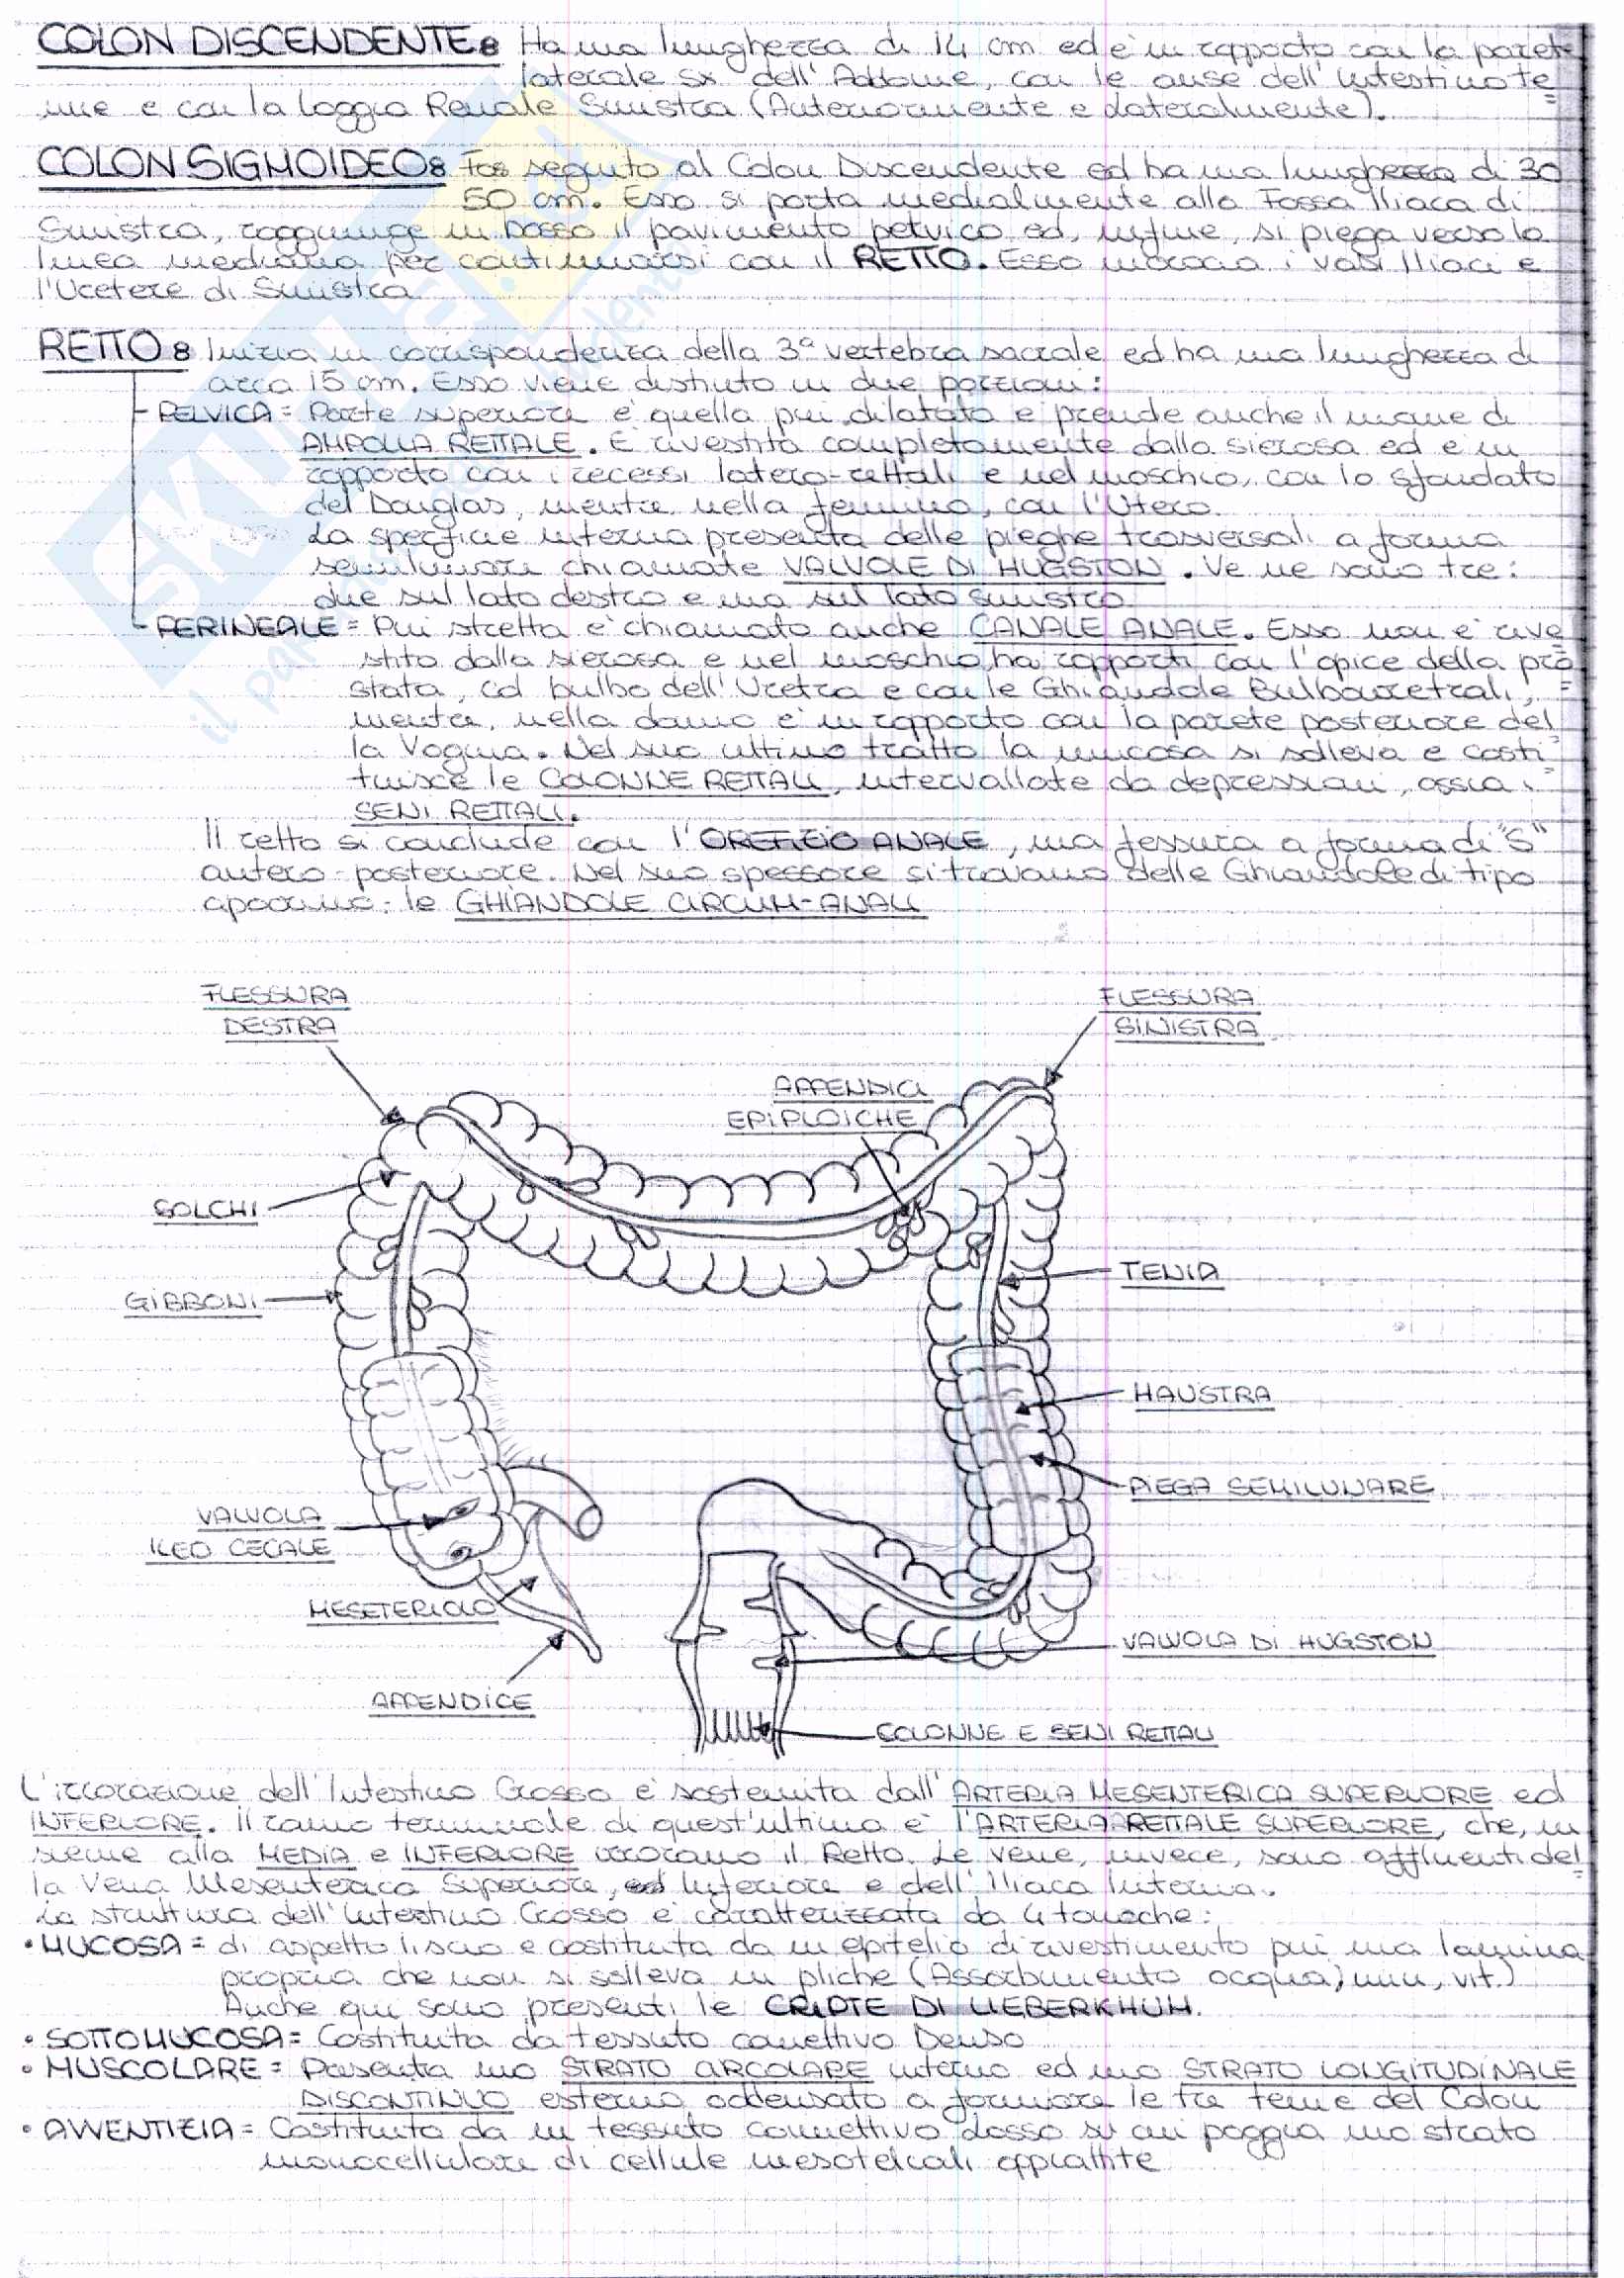 COLON DISCENDENTE: Ha una lunghezza di 14 cm ed è in rapporto con la parete
laterale sx dell'Addome, con le anse dell'Intestino te=
nue e con la Loggia Renale Sinistra (Anteriormente e Lateralmente).
COLON SIGMOIDEO: Fa seguito al Colon Discendente ed ha una lunghezza di 30
50 cm. Esso si porta medialmente alla Fossa Iliaca di
Sinistra, raggiunge in basso il pavimento pelvico ed, infine, si piega verso la
linea mediana per continuarsi con il RETTO. Esso incrocia i vasi Iliaci e
l'Uretere di Sinistra
RETTO: Inizia in corrispondenza della 3ª vertebra sacrale ed ha una lunghezza di
circa 15 cm. Esso viene distinto in due porzioni:
PELVICA = Parte superiore è quella più dilatata e prende anche il nome di
AMPOLLA RETTALE. È rivestita completamente dalla sierosa ed è in
rapporto con i recessi latero-rettali e nel maschio, con lo sfondato
del Douglas, mentre nella femmina, con l'Utero.
La sperficie interna presenta delle pieghe trasversali a forma
semilunare chiamate VALVOLE DI HUGSTON. Ve ne sono tre:
due sul lato destro e una sul lato sinistro
PERINEALE = Più stretta è chiamata anche CANALE ANALE. Esso non è rive
stito dalla sierosa e nel maschio, ha rapporti con l'apice della pro=
stata, col bulbo dell'Uretra e con le Ghiandole Bulbouretrali,
mentre, nella donna è in rapporto con la parete posteriore del=
la Vagina. Nel suo ultimo tratto la mucosa si solleva e costi=
tuisce le COLONNE RETTALI, intervallate da depressioni, ossia i
SENI RETTALI.
Il retto si conclude con l'OREFIZIO ANALE, una fessura a forma di "S"
antero-posteriore. Nel suo spessore si trovano delle Ghiandole di tipo
apocrino: le GHIANDOLE CIRCUM-ANALI
FLESSURA
DESTRA
FLESSURA
SINISTRA
APPENDICI
EPIPLOICHE
SOLCHI
GIBBONI
TENIA
HAUSTRA
PIEGA SEMILUNARE
VALVOLA
ILEO CECALE
MESETERIOLO
APPENDICE
VALVOLA DI HUGSTON
COLONNE E SENI RETTALI
L'irrorazione dell'Intestino Crosso è sostenuta dall'ARTERIA MESENTERICA SUPERIORE ed
INFERIORE. Il ramo terminale di quest'ultima è l'ARTERIA RETTALE SUPERIORE, che, in
sieme alla MEDIA e INFERIORE irrorano il Retto. Le vene, invece, sono affluenti del=
la Vena Mesenterica Superiore, ed Inferiore e dell'Iliaca Interna.
La struttura dell'Intestino Crosso è caratterizzata da 4 tonache:
• MUCOSA = di aspetto liscio è costituita da un epitelio di rivestimento più una lamina
propria che non si solleva in pliche (Assorbimento acqua, min, vit.)
Anche qui sono presenti le CRIPTE DI LIEBERKHUM.
• SOTTOMUCOSA = Costituita da tessuto connettivo Denso
• MUSCOLARE = Presenta uno STRATO CIRCOLARE interno ed uno STRATO LONGITUDINALE
DISCONTINUO esterno addensato a formare le tre tenie del Colon
• AVVENTIZIA = Costituita da un tessuto connettivo Lasso su cui poggia uno strato
monocellulare di cellule mesoteliali appiattite